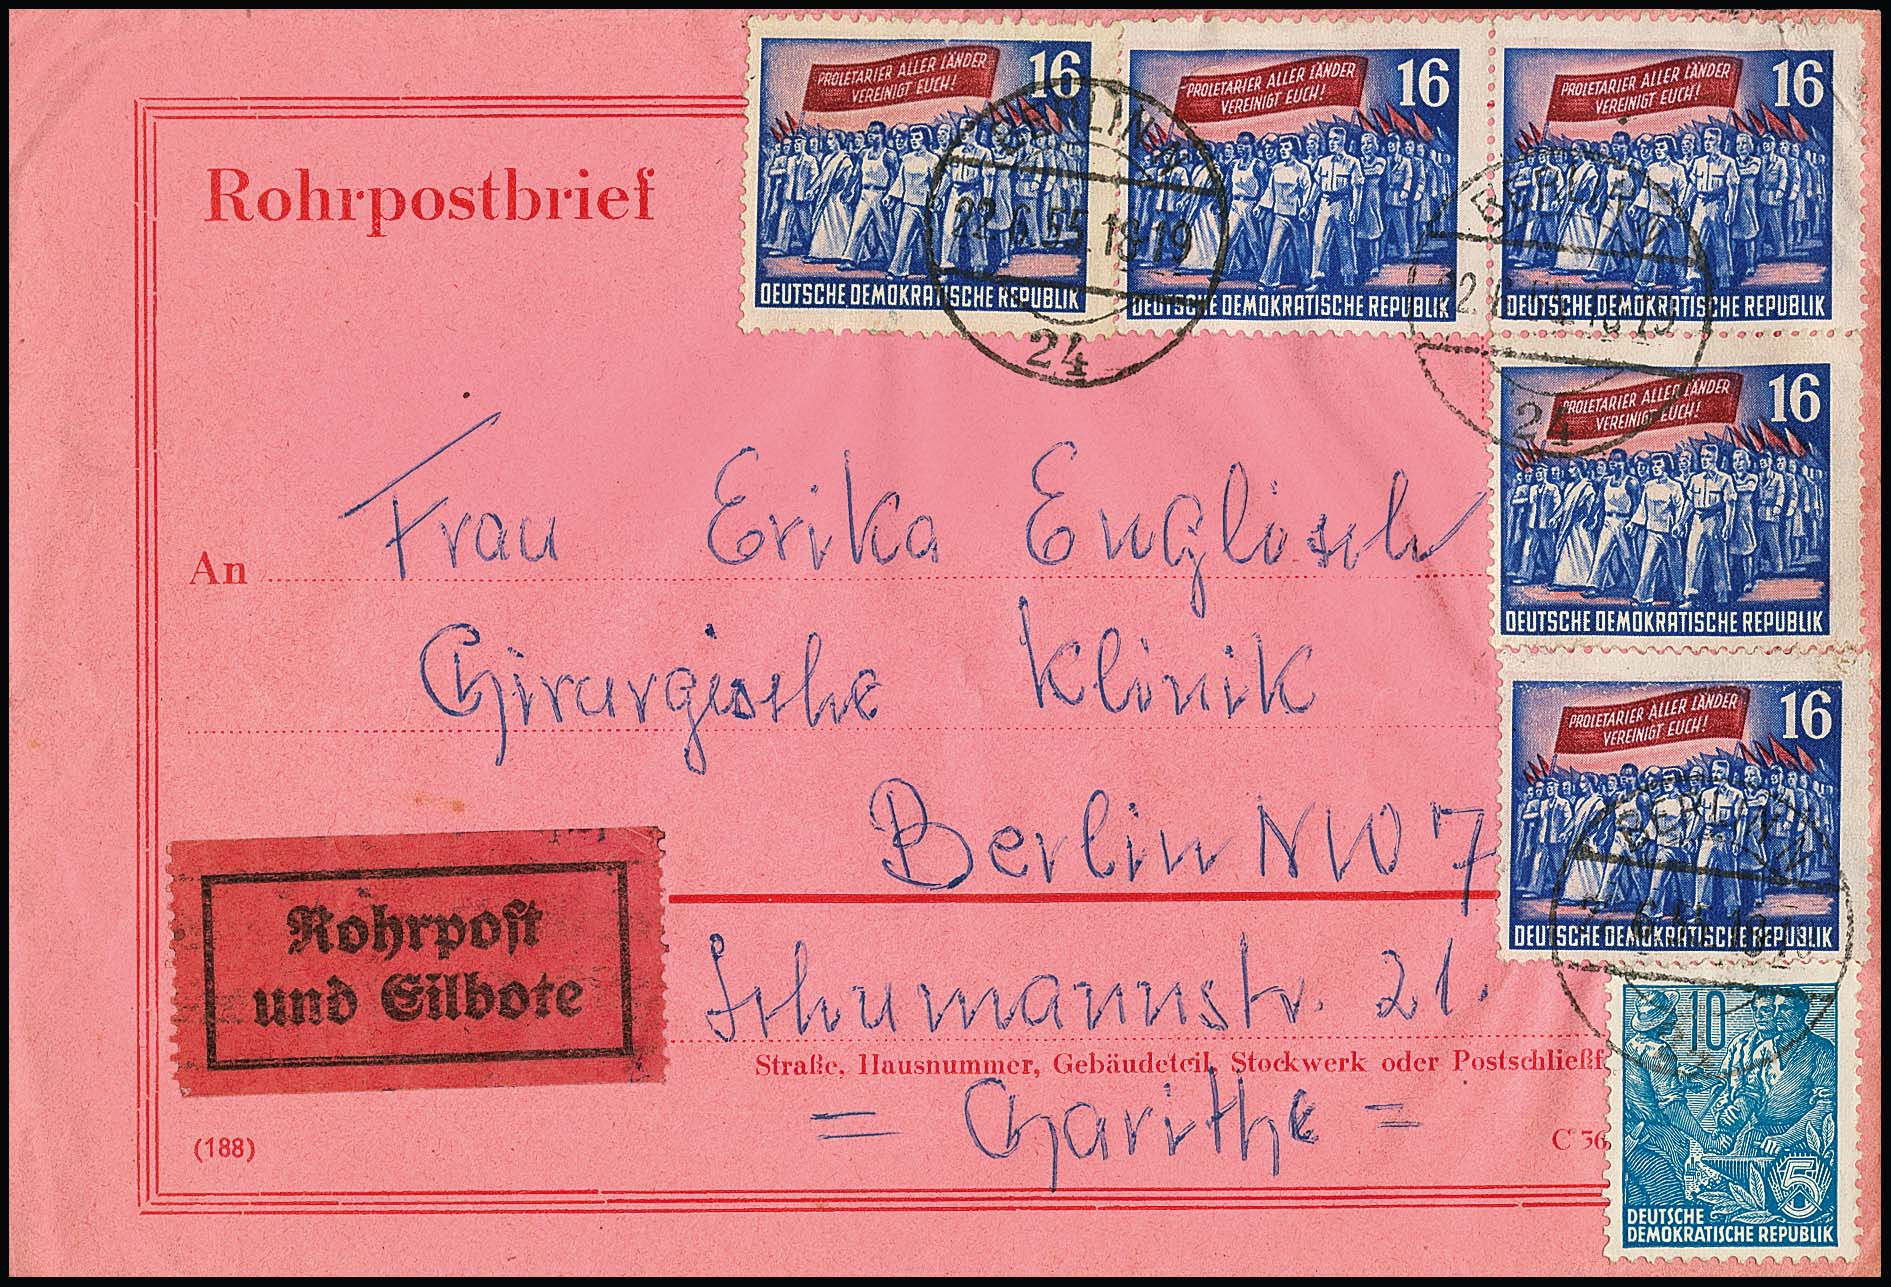 PROLETARIER ALLER LÄNDER
VEREINIGT EUCH!
16
DEUTSCHE DEMOKRATISCHE REPUBLIK
PROLETARIER ALLER LÄNDER
VEREINIGT EUCH!
16
DEUTSCHE DEMOKRATISCHE REPUBLIK
PROLETARIER ALLER LÄNDER
VEREINIGT EUCH!
16
DEUTSCHE DEMOKRATISCHE REPUBLIK
BERLIN
22.6.55.18-19
24
BERLIN
24
Rohrpostbrief
PROLETARIER ALLER LÄNDER
VEREINIGT EUCH!
16
DEUTSCHE DEMOKRATISCHE REPUBLIK
An Frau Erika Englisch
Chirurgische Klinik
Berlin NW 7
PROLETARIER ALLER LÄNDER
VEREINIGT EUCH!
16
DEUTSCHE DEMOKRATISCHE REPUBLIK
BERLIN
Rohrpost
und Eilbote
Schumannstr. 21.
Straße, Hausnummer, Gebäudeteil, Stockwerk oder Postschließf
= Charithe =
(188)
C 36
10
5
DEUTSCHE
DEMOKRATISCHE REPUBLIK